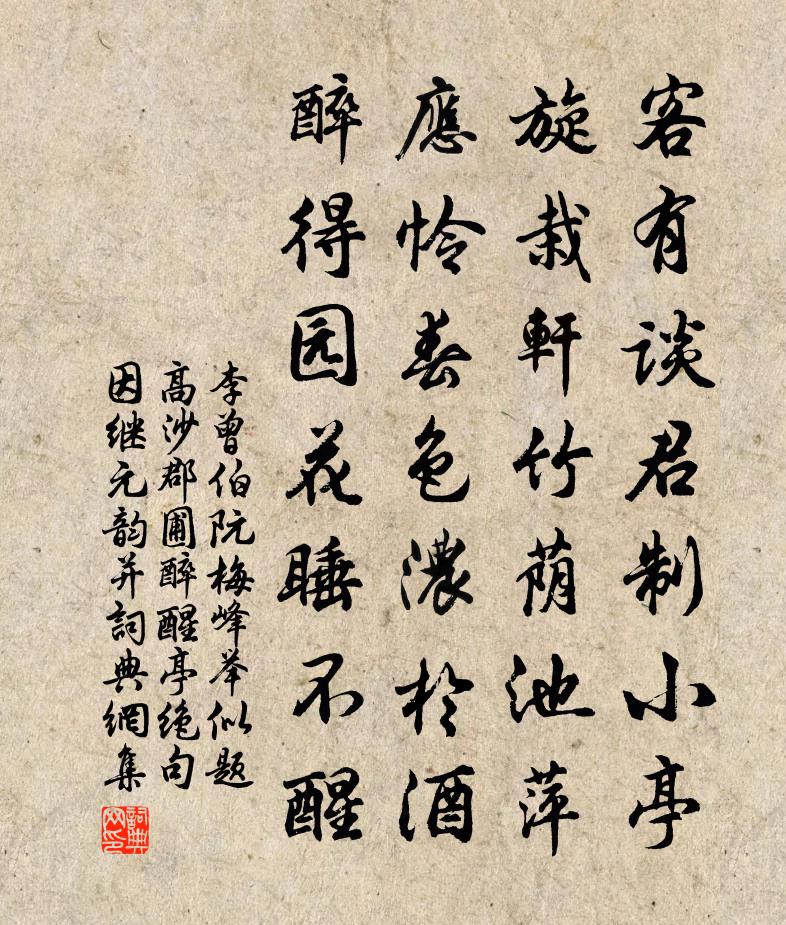 客有談君制小亭
旋栽軒竹荫池萍
應怜春色濃於酒
醉得园花睡不醒
李曾伯阮梅峰举似题
高沙郡圃醉醒亭绝句
因继元韵并詞典網集
詞典网印